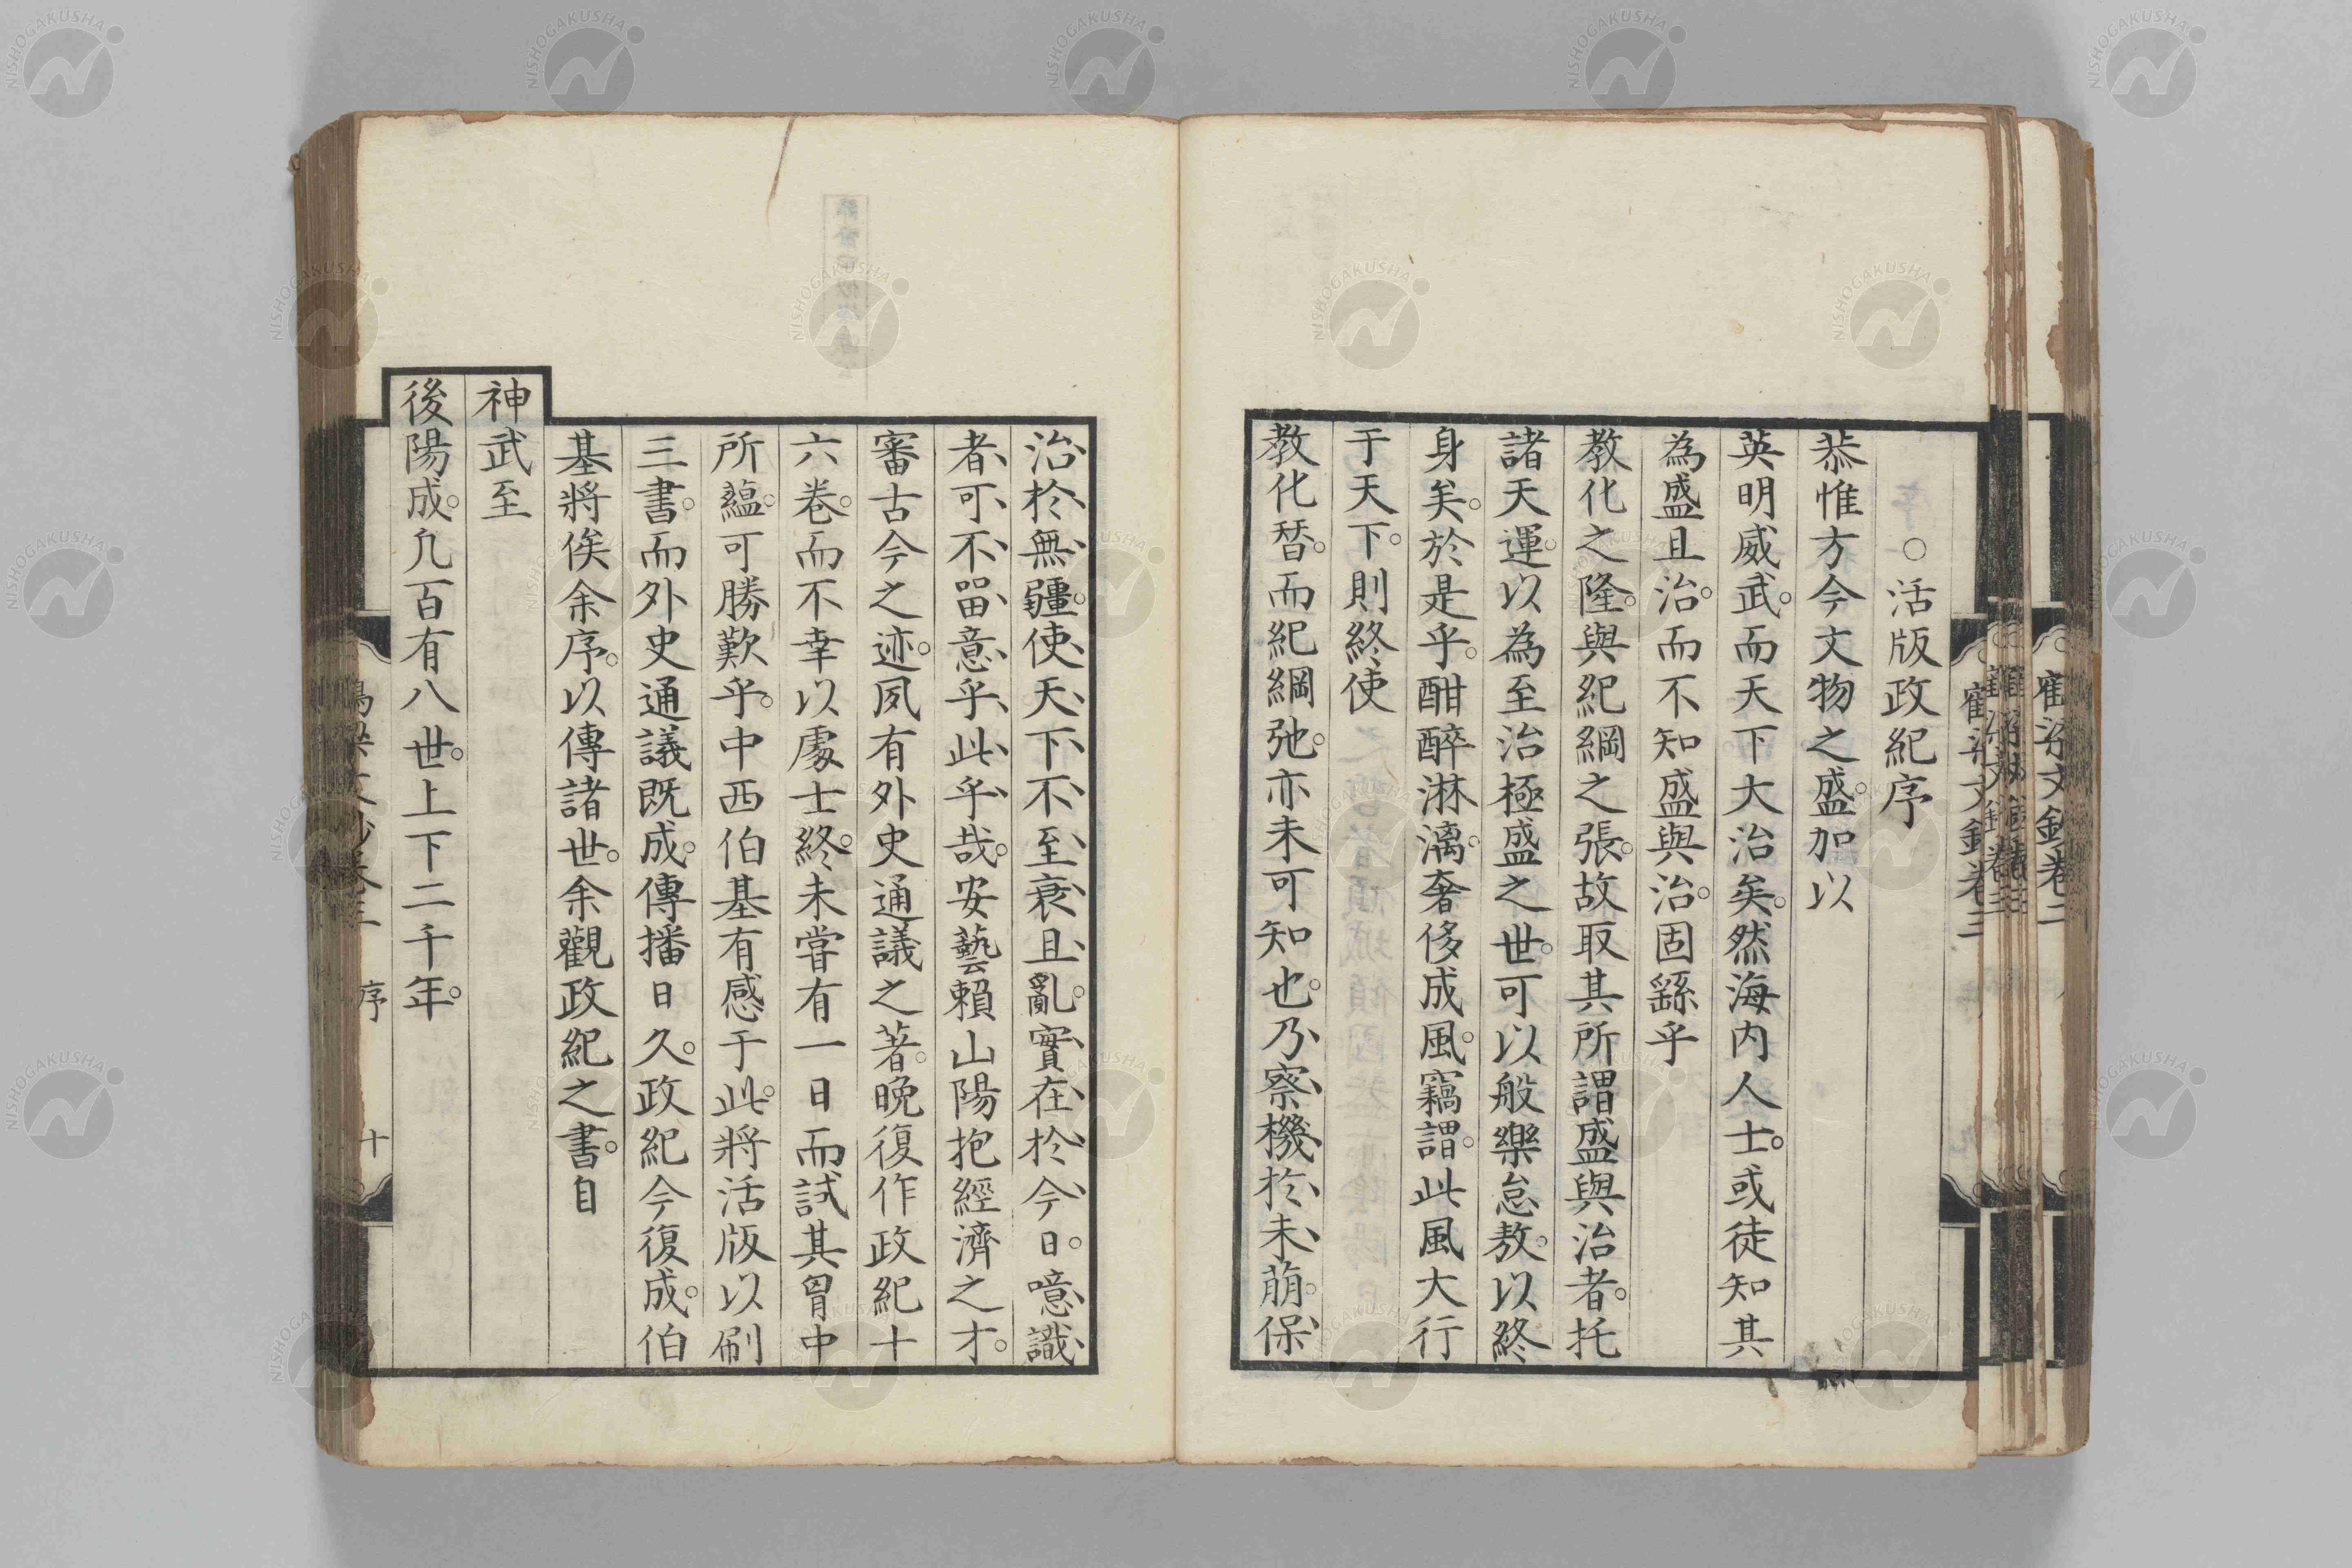 ○活版政紀序
恭惟方今文物之盛。加以
英明威武。而天下大治矣。然海内人士。或徒知其
為盛且治。而不知盛與治。固繇乎
教化之隆。與紀綱之張。故取其所謂盛與治者。托
諸天運。以為至治極盛之世。可以般樂怠敖。以終
身矣。於是乎。酣醉淋漓。奢侈成風。竊謂。此風大行
于天下。則終使
教化暜。而紀綱弛。亦未可知也。乃察機於未萠。保
治於無疆。使天下不至衰且亂。實在於今日。噫識
者可不畱意乎此乎哉。安藝賴山陽抱經濟之才。
審古今之迹。夙有外史通議之著。晩復作政紀十
六卷。而不幸以處士終。未嘗有一日而試其胷中
所蘊。可勝歎乎。中西伯基有感于此。將活版以刷
三書。而外史通議既成。傳播日久。政紀今復成。伯
基將俟余序。以傳諸世。余觀政紀之書。自
神武至
後陽成。凡百有八世。上下二千年。
序
十
NISHOGAKUSHA